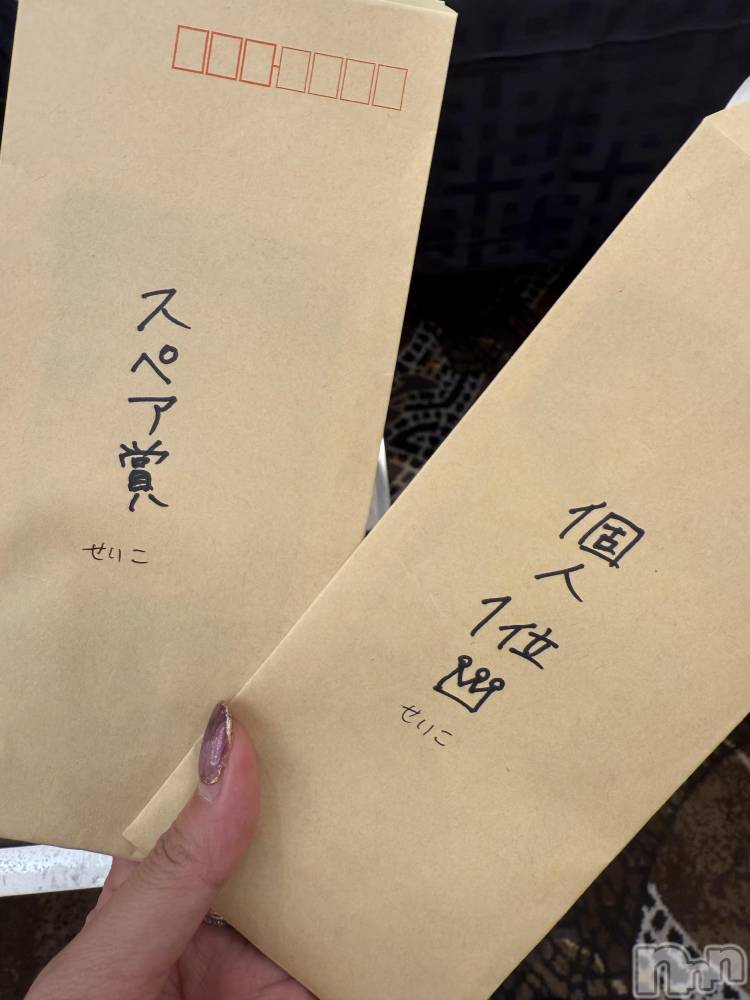 スペア賞
せいこ
個人1位
せいこ
nnn